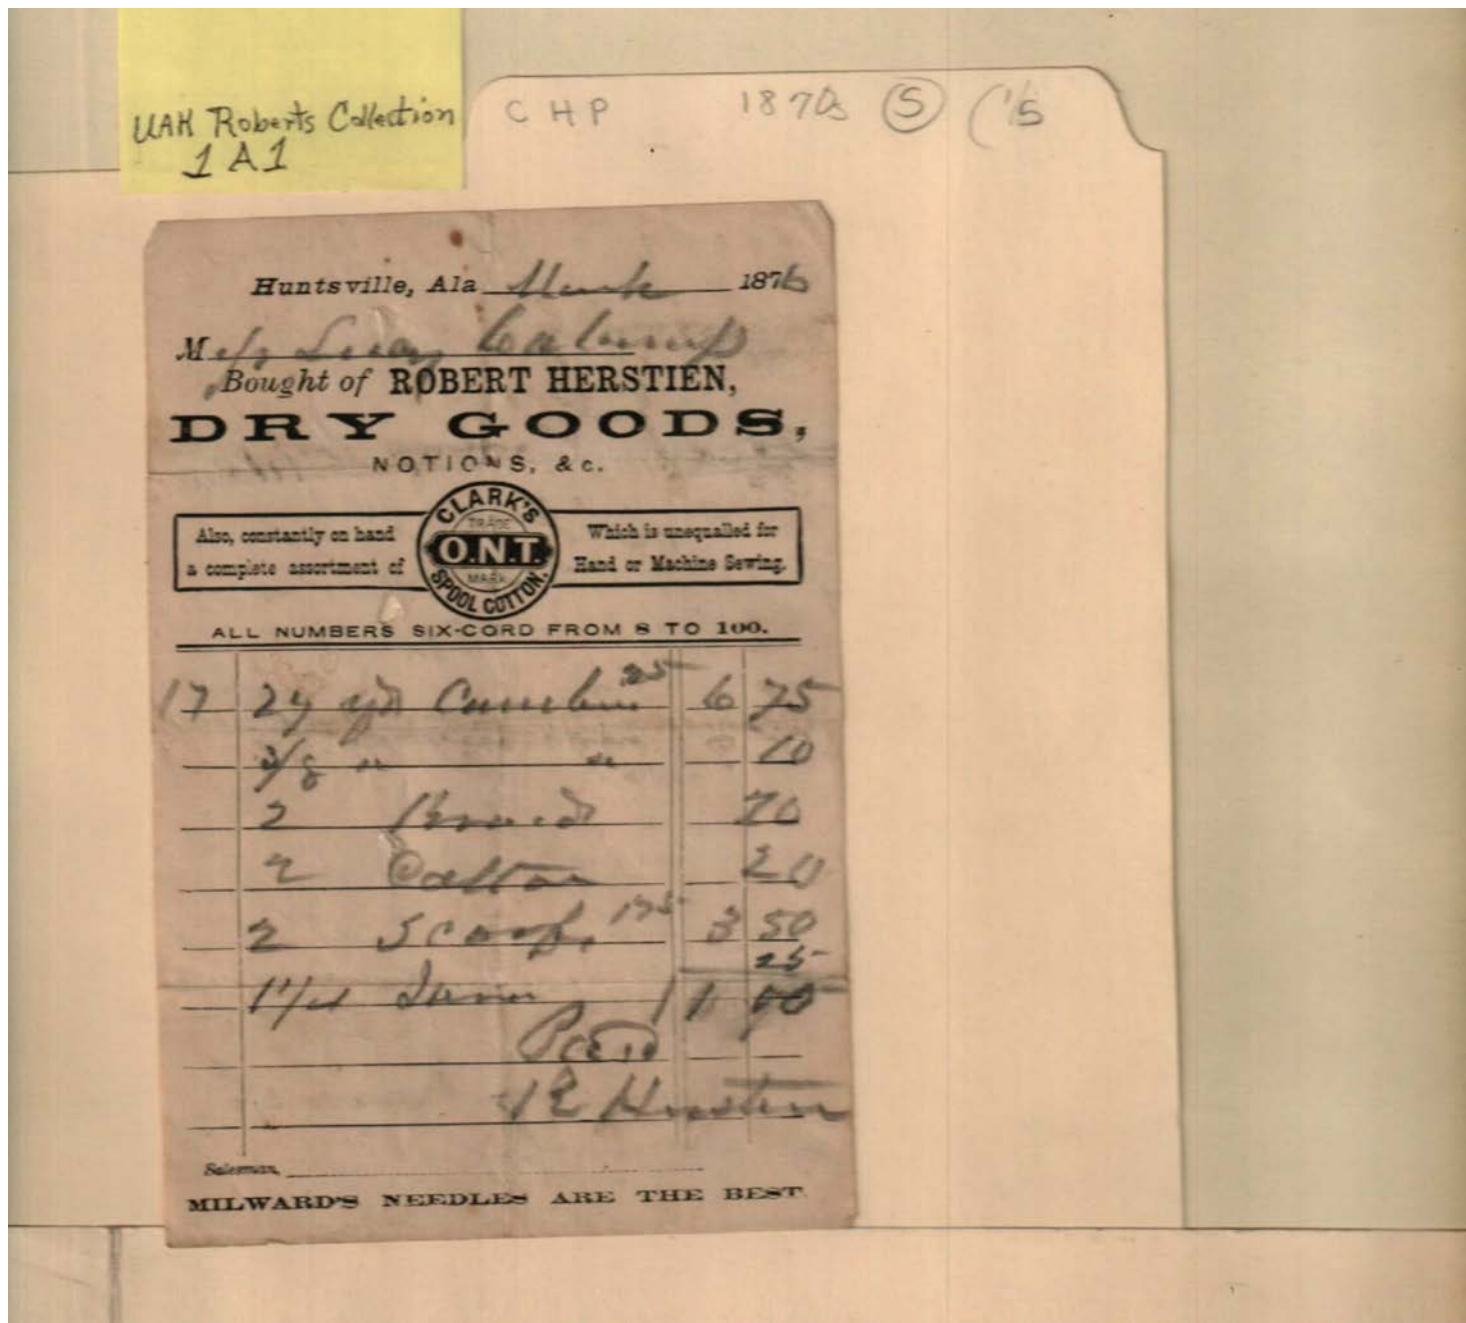 UAH Roberts Collection
1 A 1
C H P 1870s (5) (1/5
Huntsville, Ala March 1876
M
Bought of ROBERT HERSTIEN,
DRY GOODS,
NOTIONS, &c.
Also, constantly on hand
a complete assortment of
CLARK'S
TRADE
O.N.T.
MARK
SPOOL COTTON.
Which is unequalled for
Hand or Machine Sewing.
ALL NUMBERS SIX-CORD FROM 8 TO 100.
17 27 yds 25 6 75
3/8 " " 10
2 Braid 70
2 Cotton 20
2 Scarfs 175 3 50
25
1 1/4
Paid
R Herstein
Salesman,
MILWARD'S NEEDLES ARE THE BEST.